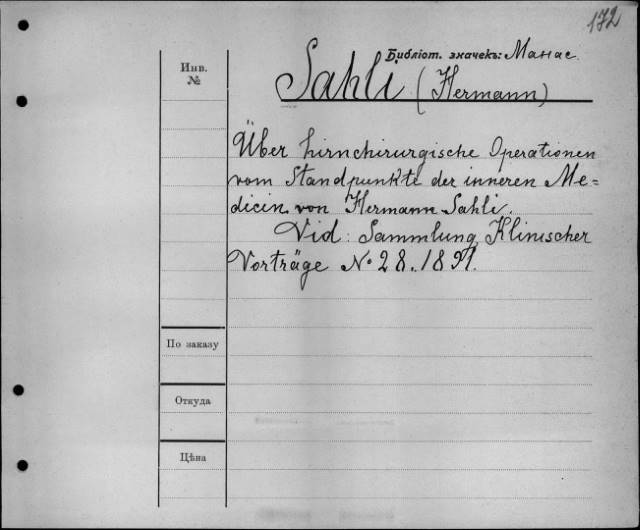 172
Инв.
№
Библіот. значекъ: Манас.
Sahli (Hermann)
Über hirnchirurgische Operationen
vom Standpunkte der inneren Me=
dicin von Hermann Sahli.
Vid: Sammlung Klinischer
Vorträge No 28. 1891.
По заказу
Откуда
Цѣна